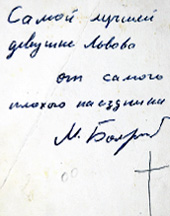 Самой лучшей
девушке Львова
от самого
плохого наездника
М. Бояр